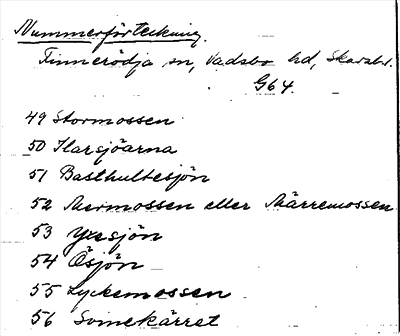 Nummerförteckning.
Finnerödja sn, Vadsbo hd, Skarabl.
G64.
49 Stormossen
50 Ilarsjöarna
51 Basthultesjön
52 Mermossen eller Märremossen
53 Yxesjön
54 Ösjön
55 Lyckemossen
56 Svinekärret